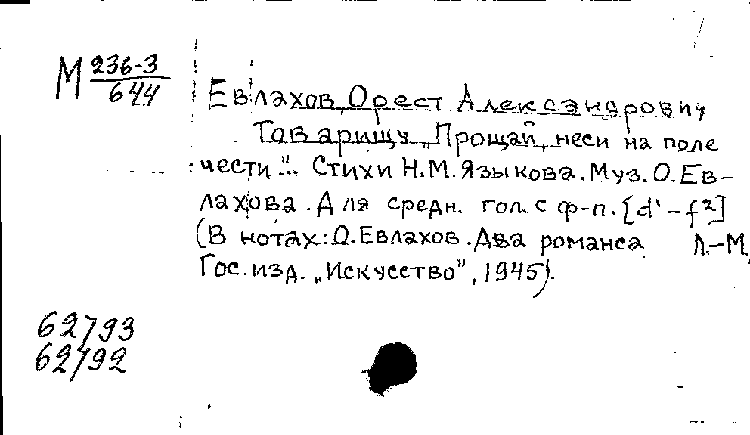 М 236-3
644
Евлахов, Орест Александрович
Товарищу „Прощай, неси на поле
чести“... Стихи Н.М. Языкова. Муз. О. Ев-
лахова. Для средн. гол. с ф-п. [d¹ – f²]
(В нотах: О. Евлахов. Два романса Л.–М,
Гос. изд. „Искусство“, 1945).
62793
62792